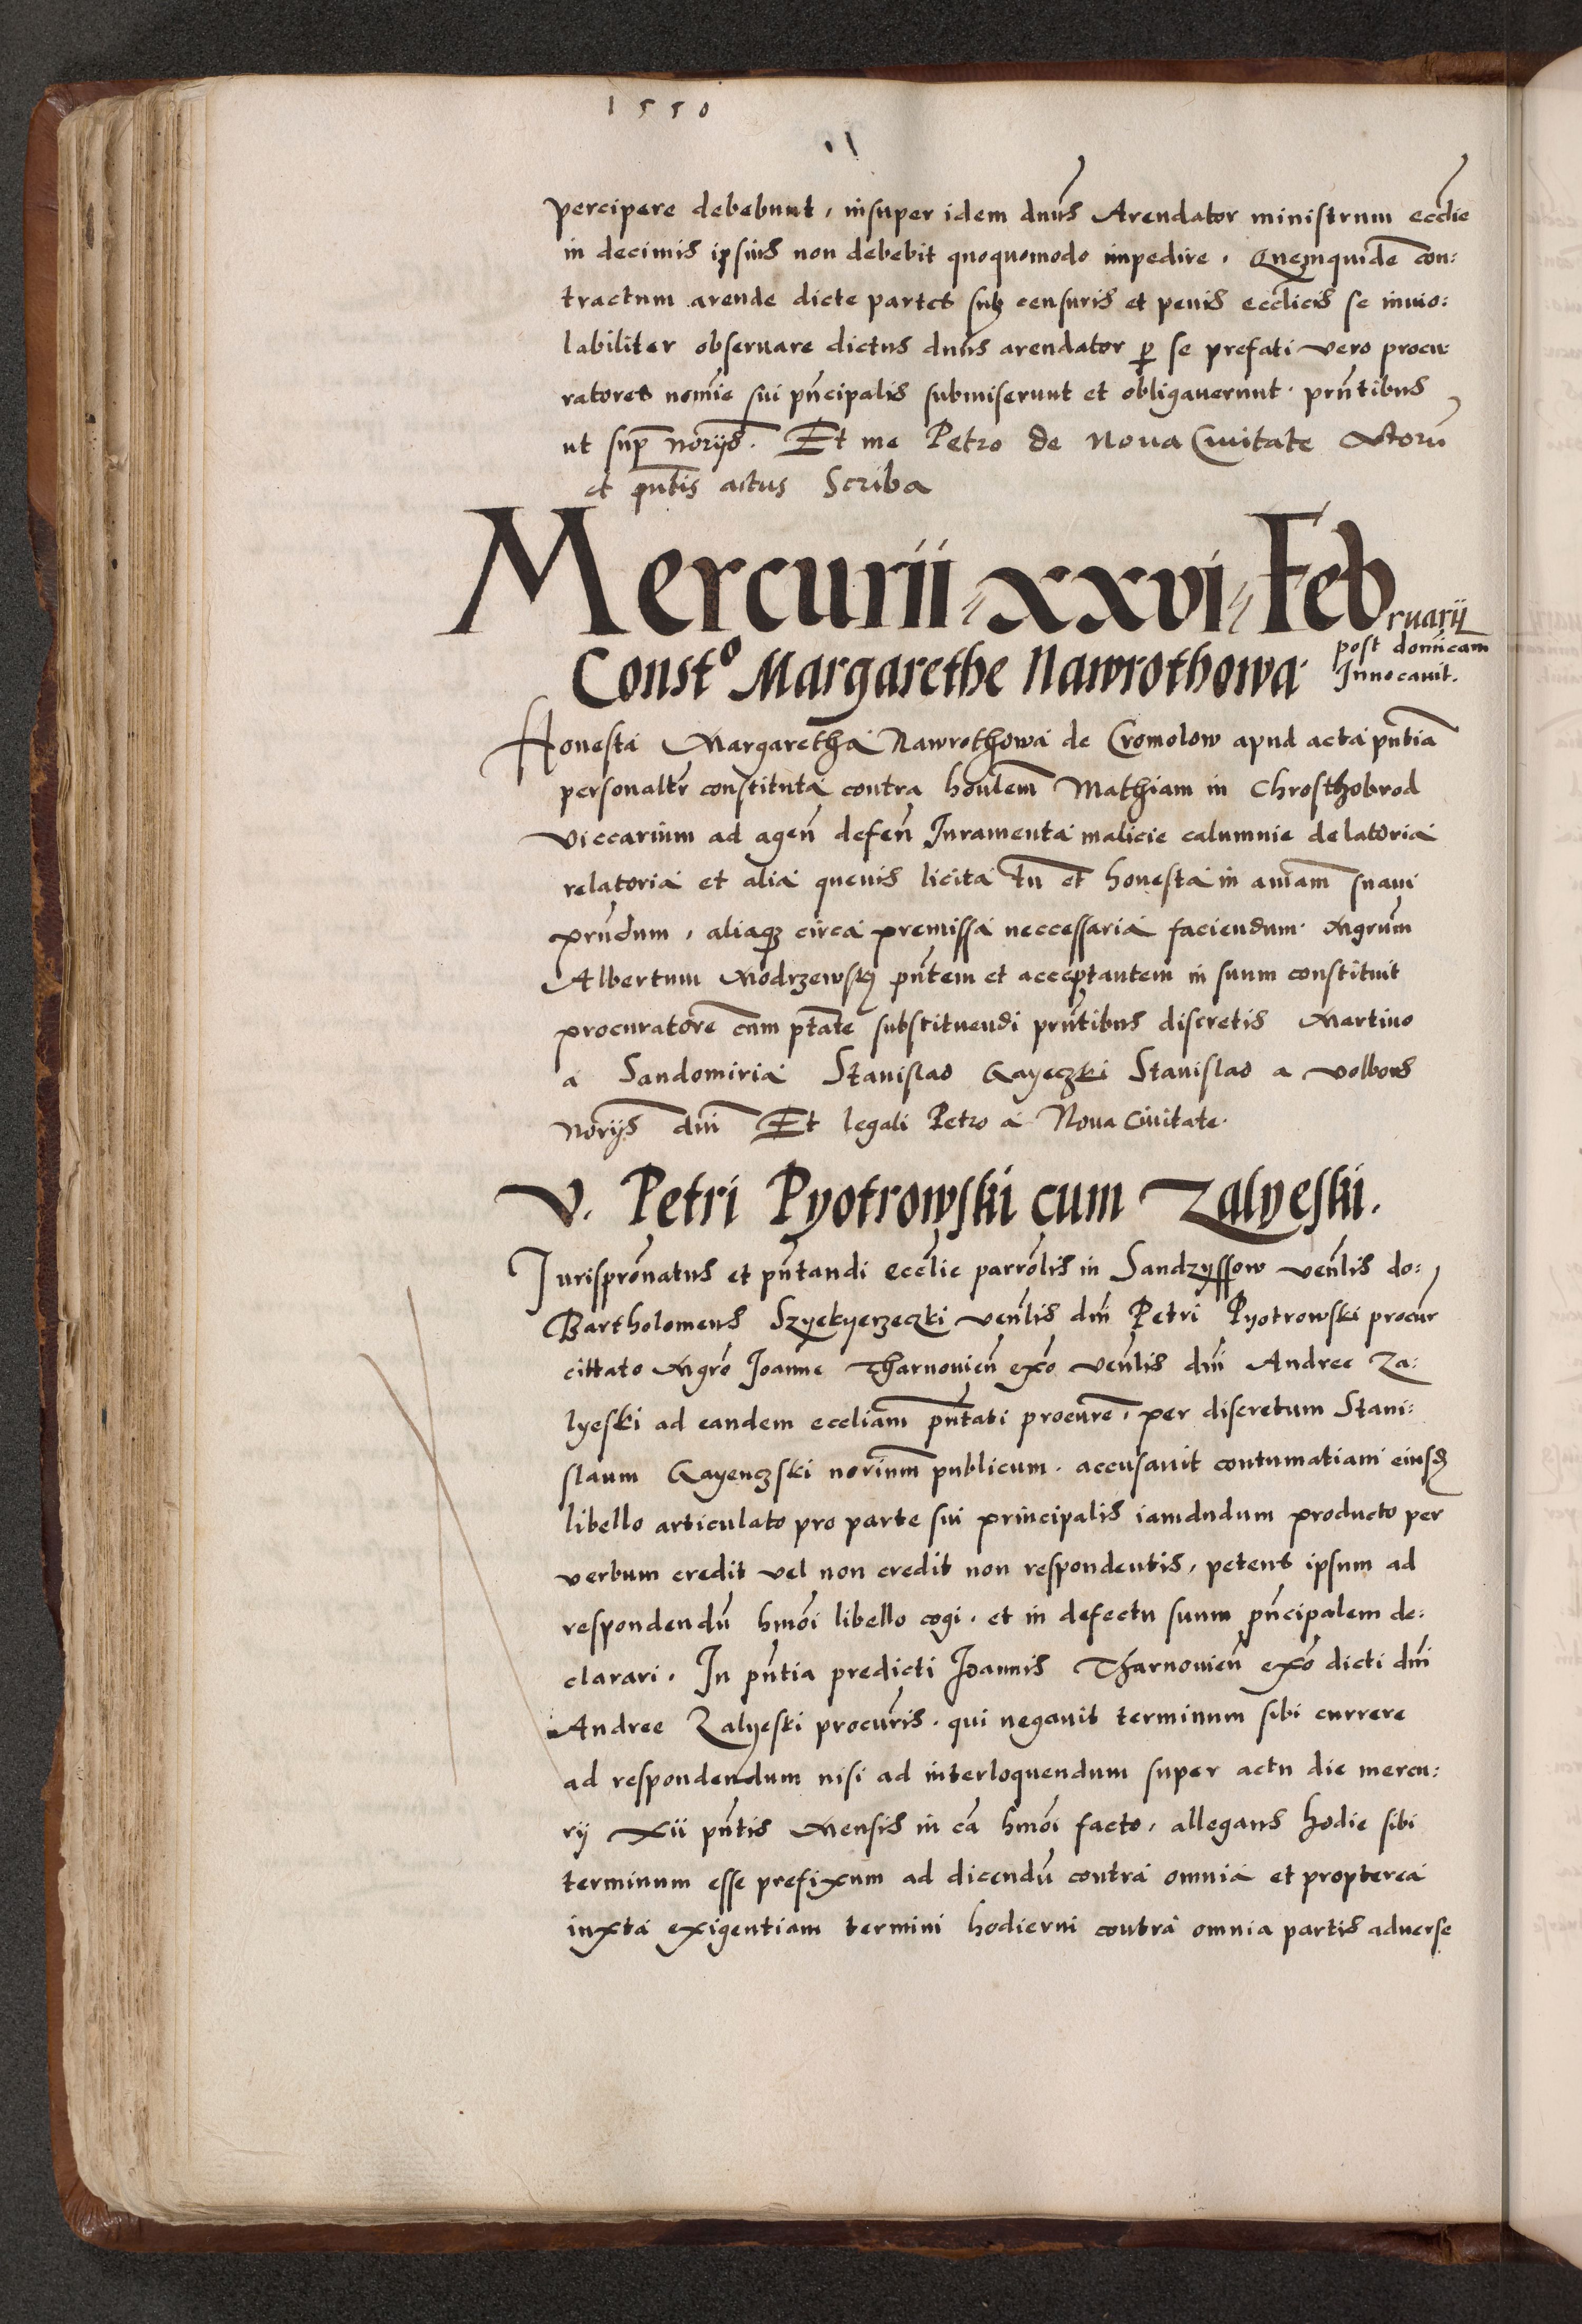 1550
percipere debebunt, insuper idem dnus Arendator ministrum eccl̄ie
in decimis ipsius non debebit quoquomodo impedire. Quemquidē con:
tractum arende dicte partes sub censuris et penis eccl̄icis se inuio:
labiliter obseruare dictus dnūs arendator p̱ se prefati vero procu:
ratores nomīe sui pn̄cipalis submiserunt et obligauerunt. prn̄tibus
ut sup̄ norijs. Et me Petro de Noua Ciuitate Actorū
et pn̄tis actus Scriba
Mercurii xxvi Februarij
post domīcam
Inuocauit.
Const⁰ Margarethe Nawrothowa
Honesta Margaretha Nawrothowa de Cromolow apud acta pn̄tia
personaltr̄ constituta contra honl̄em Mathiam in Chrosthobrod
viccarium ad agen̄ defen̄ Iuramenta malicie calumnie delatoria
relatoria et alia queuis licita tn̄ et honesta in aniam̄ suaui
prn̄dum, aliaqȝ circa premissa neccessaria faciendum. Mgrūm
Albertum Modrzewsky pn̄tem et acceptantem in suum constituit
procuratorē cum ptāte substituendi prn̄tibus discretis Martino
a Sandomiria Stanislao Gayeczki Stanislao a Volbors
Norijs dn̄i Et legali Petro a Noua Ciuitate.
V. Petri Pyotrowski cum Zalyeski.
Jurisprōnatus et pn̄tandi eccl̄ie parrōlis in Sandzyssow ven̄lis do:
Bartholomeus Szyekyerzeczki ven̄lis dn̄i Petri Pyotrowski procūr
cittato Mgrō Joanne Tharnouien̄ exō ven̄lis dn̄i Andree Za:
lyeski ad eandem eccliam pn̄tati procurē, per discretum Stani:
slaum Gayenczski norium̄ publicum. accusauit contumatiam eiusd̄
libello articulato pro parte sui principalis iamdudum producto per
verbum credit vel non credit non respondentis, petens ipsum ad
respondendū hmōi libello cogi. et in defectu suum pn̄cipalem de:
clarari. In pn̄tia predicti Joannis Tharnouien̄ exō dicti dn̄i
Andree Zalyeski procūris. qui negauit terminum sibi currere
ad respondendum nisi ad interloquendum super actu die mercu:
rij xii pn̄tis Mensis in cā hmōi facto, allegans hodie sibi
terminum esse prefixum ad dicendū contra omnia et propterea
iuxta exigentiam termini hodierni contra omnia partis aduerse